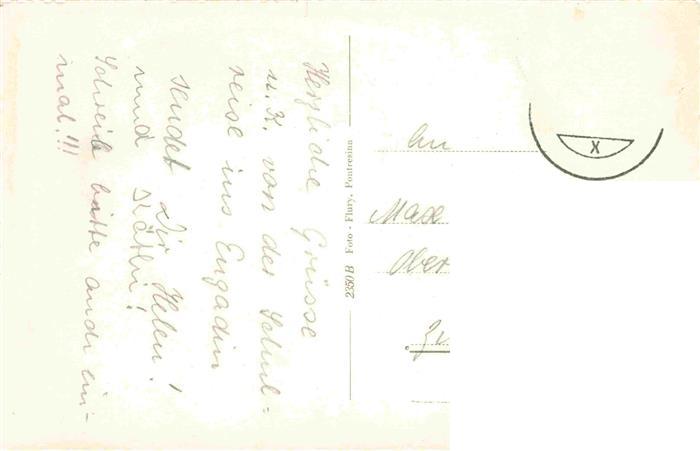 Herzliche Grüsse
u. K. von der Schul=
reise ins Engadin
sendet Dir Helen!
und Käthi!
Schreibe bitte auch ein-
mal!!!
2350B Foto - Flury, Pontresina
An
Max
Ober
X